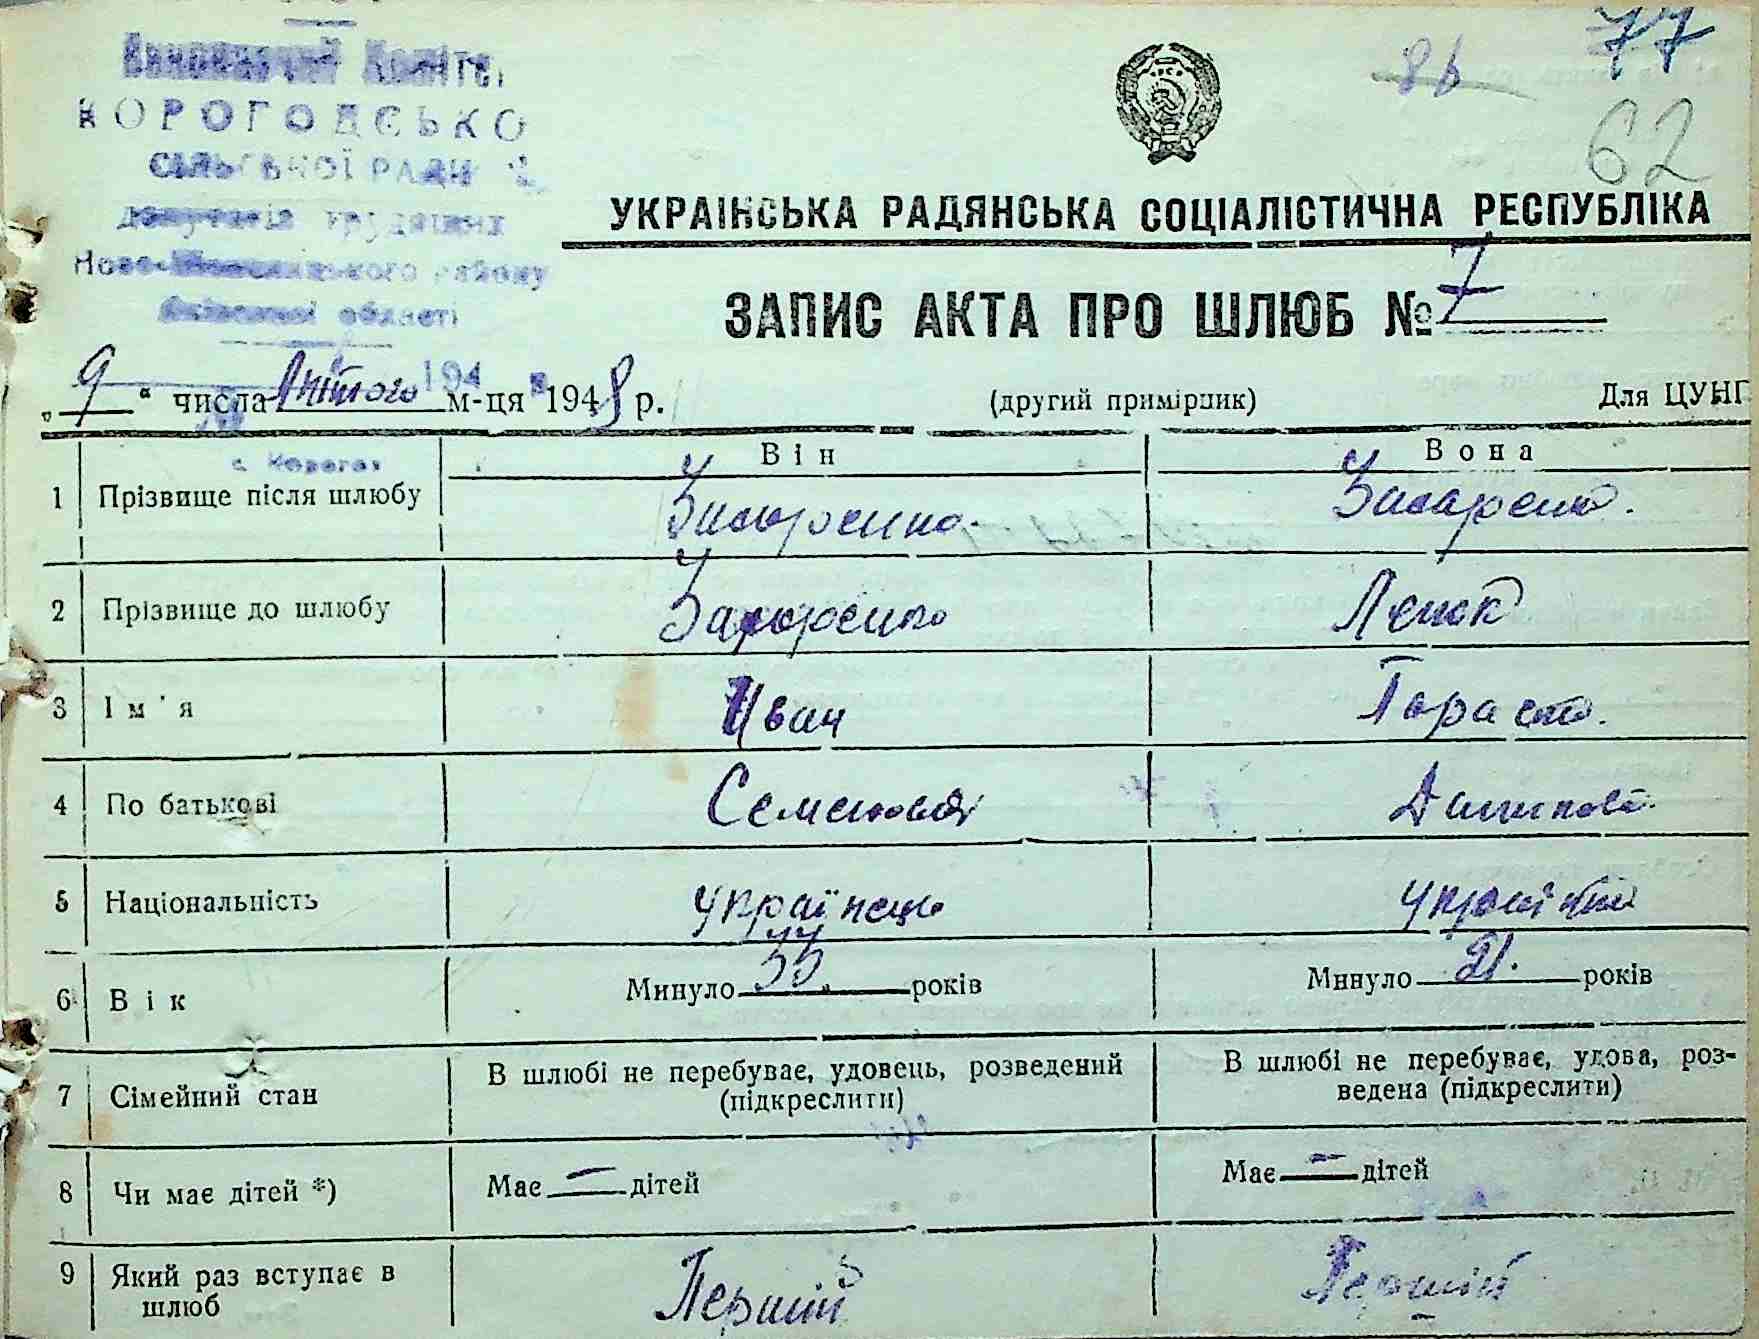 Виконавчий Коміте
КОРОГОДСЬКО
СІЛЬСЬКОЇ РАДИ
депутатів трудящих
Ново-Шепелицького району
Київської області
194
с. Корогод
86
77
62
УКРАЇНСЬКА РАДЯНСЬКА СОЦІАЛІСТИЧНА РЕСПУБЛІКА
ЗАПИС АКТА ПРО ШЛЮБ № 7
„ 9 “ числа Лютого м-ця 1948 р. (другий примірник) Для ЦУНГ
Він Вона
1 Прізвище після шлюбу Захаренко. Захаренко.
2 Прізвище до шлюбу Захаренко
3 Ім'я Іван
4 По батькові Семенович
5 Національність українець українка
6 Вік Минуло 33 років Минуло 21. років
7 Сімейний стан В шлюбі не перебуває, удовець, розведений (підкреслити) В шлюбі не перебуває, удова, роз-
ведена (підкреслити)
8 Чи має дітей *) Має — дітей Має — дітей
9 Який раз вступає в Перший Перший
шлюб